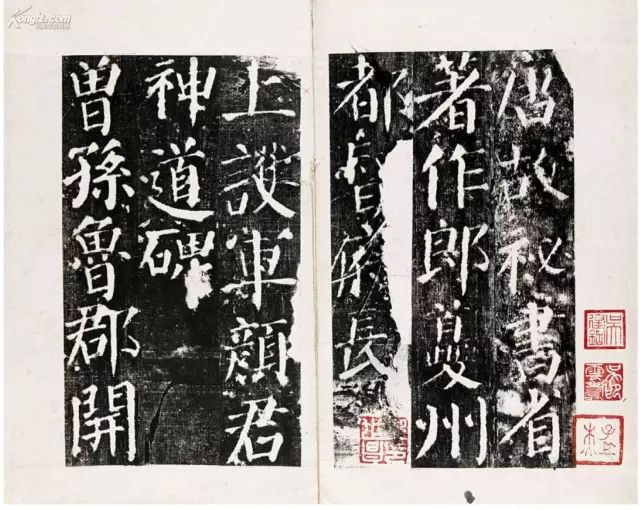 唐故秘書省
著作郎夔州
都督府長
上護軍顏君
神道碑
曾孫魯郡開
Kongfz.com